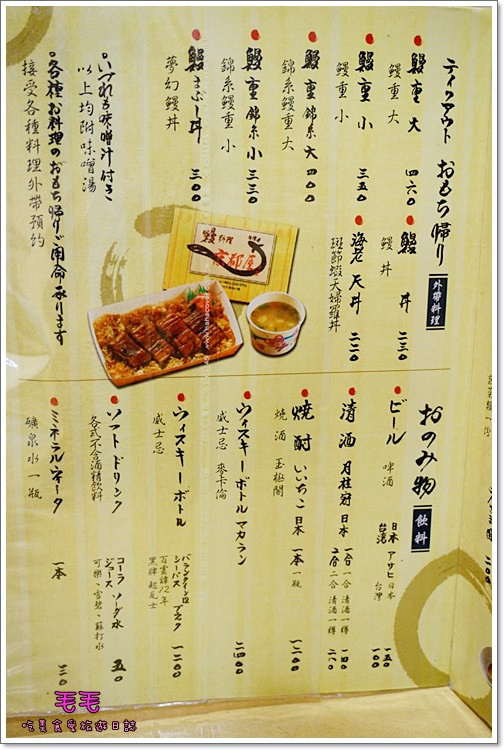 テイクアウト おもち帰り 外帶料理
鰻重 大 四六〇
鰻重 大
鰻重 小 三五〇
鰻重 小
鰻重 錦糸 大 四〇〇
錦糸鰻重 大
鰻重 錦糸 小 三三〇
錦糸鰻重 小
鰻まぶし丼 三〇〇
夢幻鰻丼
鰻 丼 二三〇
鰻丼
海老天丼 二二〇
斑節蝦天婦羅丼
いづれも味噌汁付き
以上均附味噌湯
各種お料理のおもち帰りご用命承ります
接受各種料理外帶預約
鰻料理
京都屋
おのみ物 飲料
ビール 啤酒 日本 アサヒ 日本 一五〇
台湾 台灣 一〇〇
清酒 月桂冠 日本 一合 一合 清酒一樽 一四〇
二合 二合 清酒一樽 二八〇
焼酎 いいちこ 日本 一本 一瓶 一二〇〇
燒酒
ウィスキーボトル マカラン 二四〇〇
威士忌 麥卡倫
ウィスキーボトル バランタイン12 一二〇〇
シーバス ブラック
威士忌 百靈譚12年
黑牌 起瓦士
ソフトドリンク コーラ ソーダ水 五〇
ジュース
各式不含酒精飲料 可樂、雪碧、蘇打水
ミネラルウォータ 一本 三〇
礦泉水 一瓶
毛毛
吃喜食堂旅遊日誌